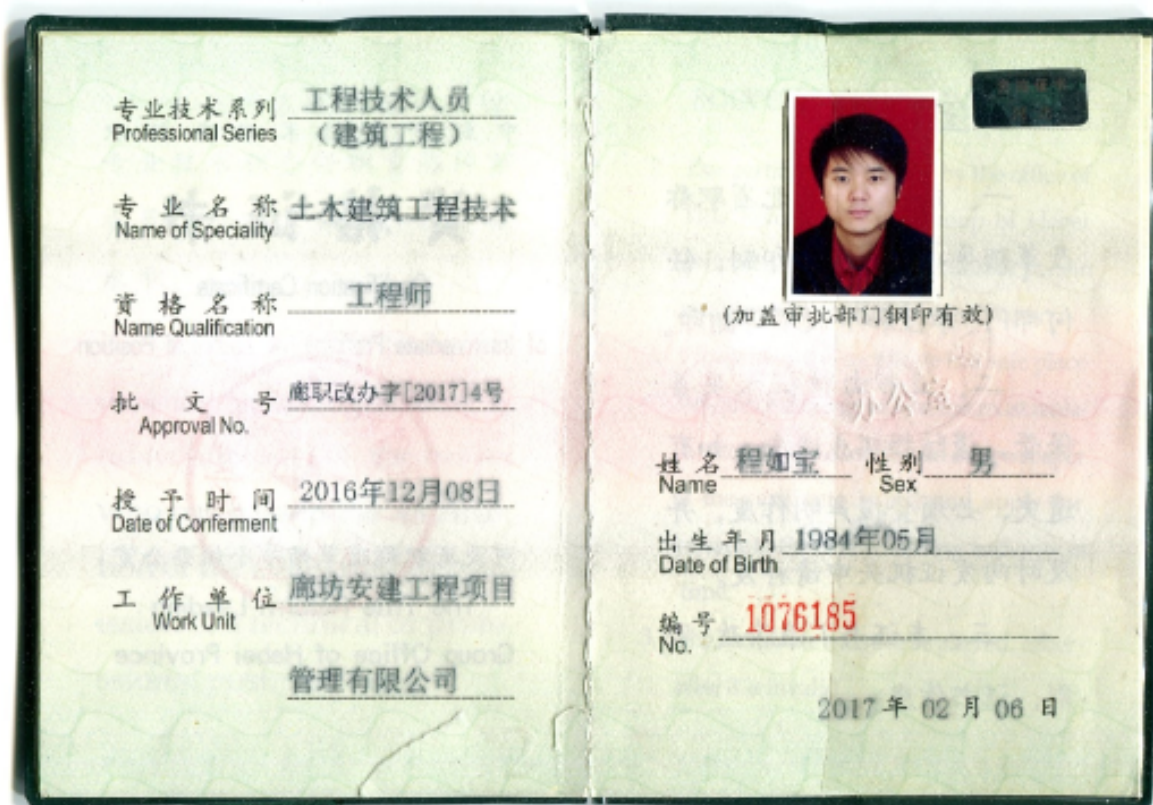 专业技术系列 工程技术人员
Professional Series （建筑工程）
专业名称 土木建筑工程技术
Name of Speciality
资格名称 工程师
Name Qualification
批文号 廊职改办字[2017]4号
Approval No.
授予时间 2016年12月08日
Date of Conferment
工作单位 廊坊安建工程项目
Work Unit
管理有限公司
(加盖审批部门钢印有效)
办公室
姓名 程如宝 性别 男
Name Sex
出生年月 1984年05月
Date of Birth
编号 1076185
No.
2017年02月06日